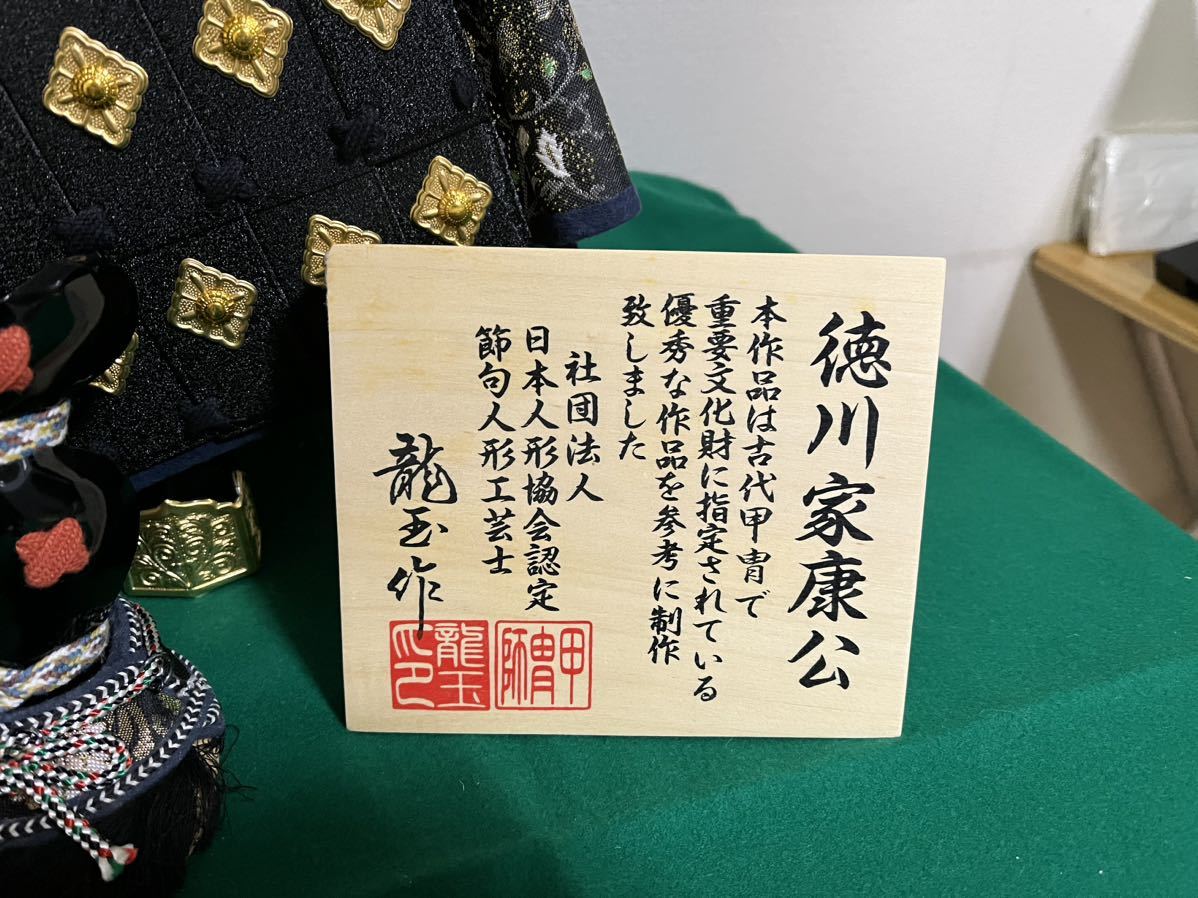 徳川家康公
本作品は古代甲冑で
重要文化財に指定されている
優秀な作品を参考に制作
致しました
社団法人
日本人形協会認定
節句人形工芸士
龍玉作
甲冑師
龍玉之印